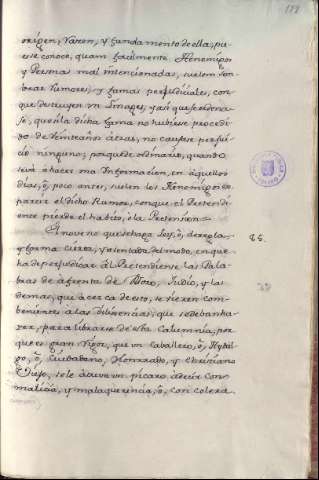 112
origen, varon, y fundamento de ella, pu-
es se conoce, quam facilmente, Henemigos
y Personas mal intencionadas, suelen sem-
brar rumores, y famas perjudiciales, con
que destruyen un Linage, y assi que se ordena-
se, que si la dicha fama no hubiese procedi-
do de veinte años atras, no causase perjui-
cio ninguno; porque de ordinario, quando
se va à hacer una Informacion, en aquellos
dias, ò, poco antes, suelen los Henemigos es-
parcir el dicho Rumor, con que el Pretendi-
ente pierde el habito, ò la Pretension.
Si no se que se haga Ley, ò, de regla,
y forma cierta, y asentada del modo, en que
ha de perjudicar al Pretendiente las Pala-
bras de afrenta de Moro, Judio, y las
demas, que acerca de esto, se tienen com-
benientes a las diligencias, que se deban ha-
zer, para librarse de esta Calumnia, por
que es gran rigor, que un Caballero, ò, Hydal-
go, ò, Ciudadano, Honrrado, y Christiano
Viejo, solo à cave un picaro, à decir con
malicia, y mala querencia, ò, con colera
26.